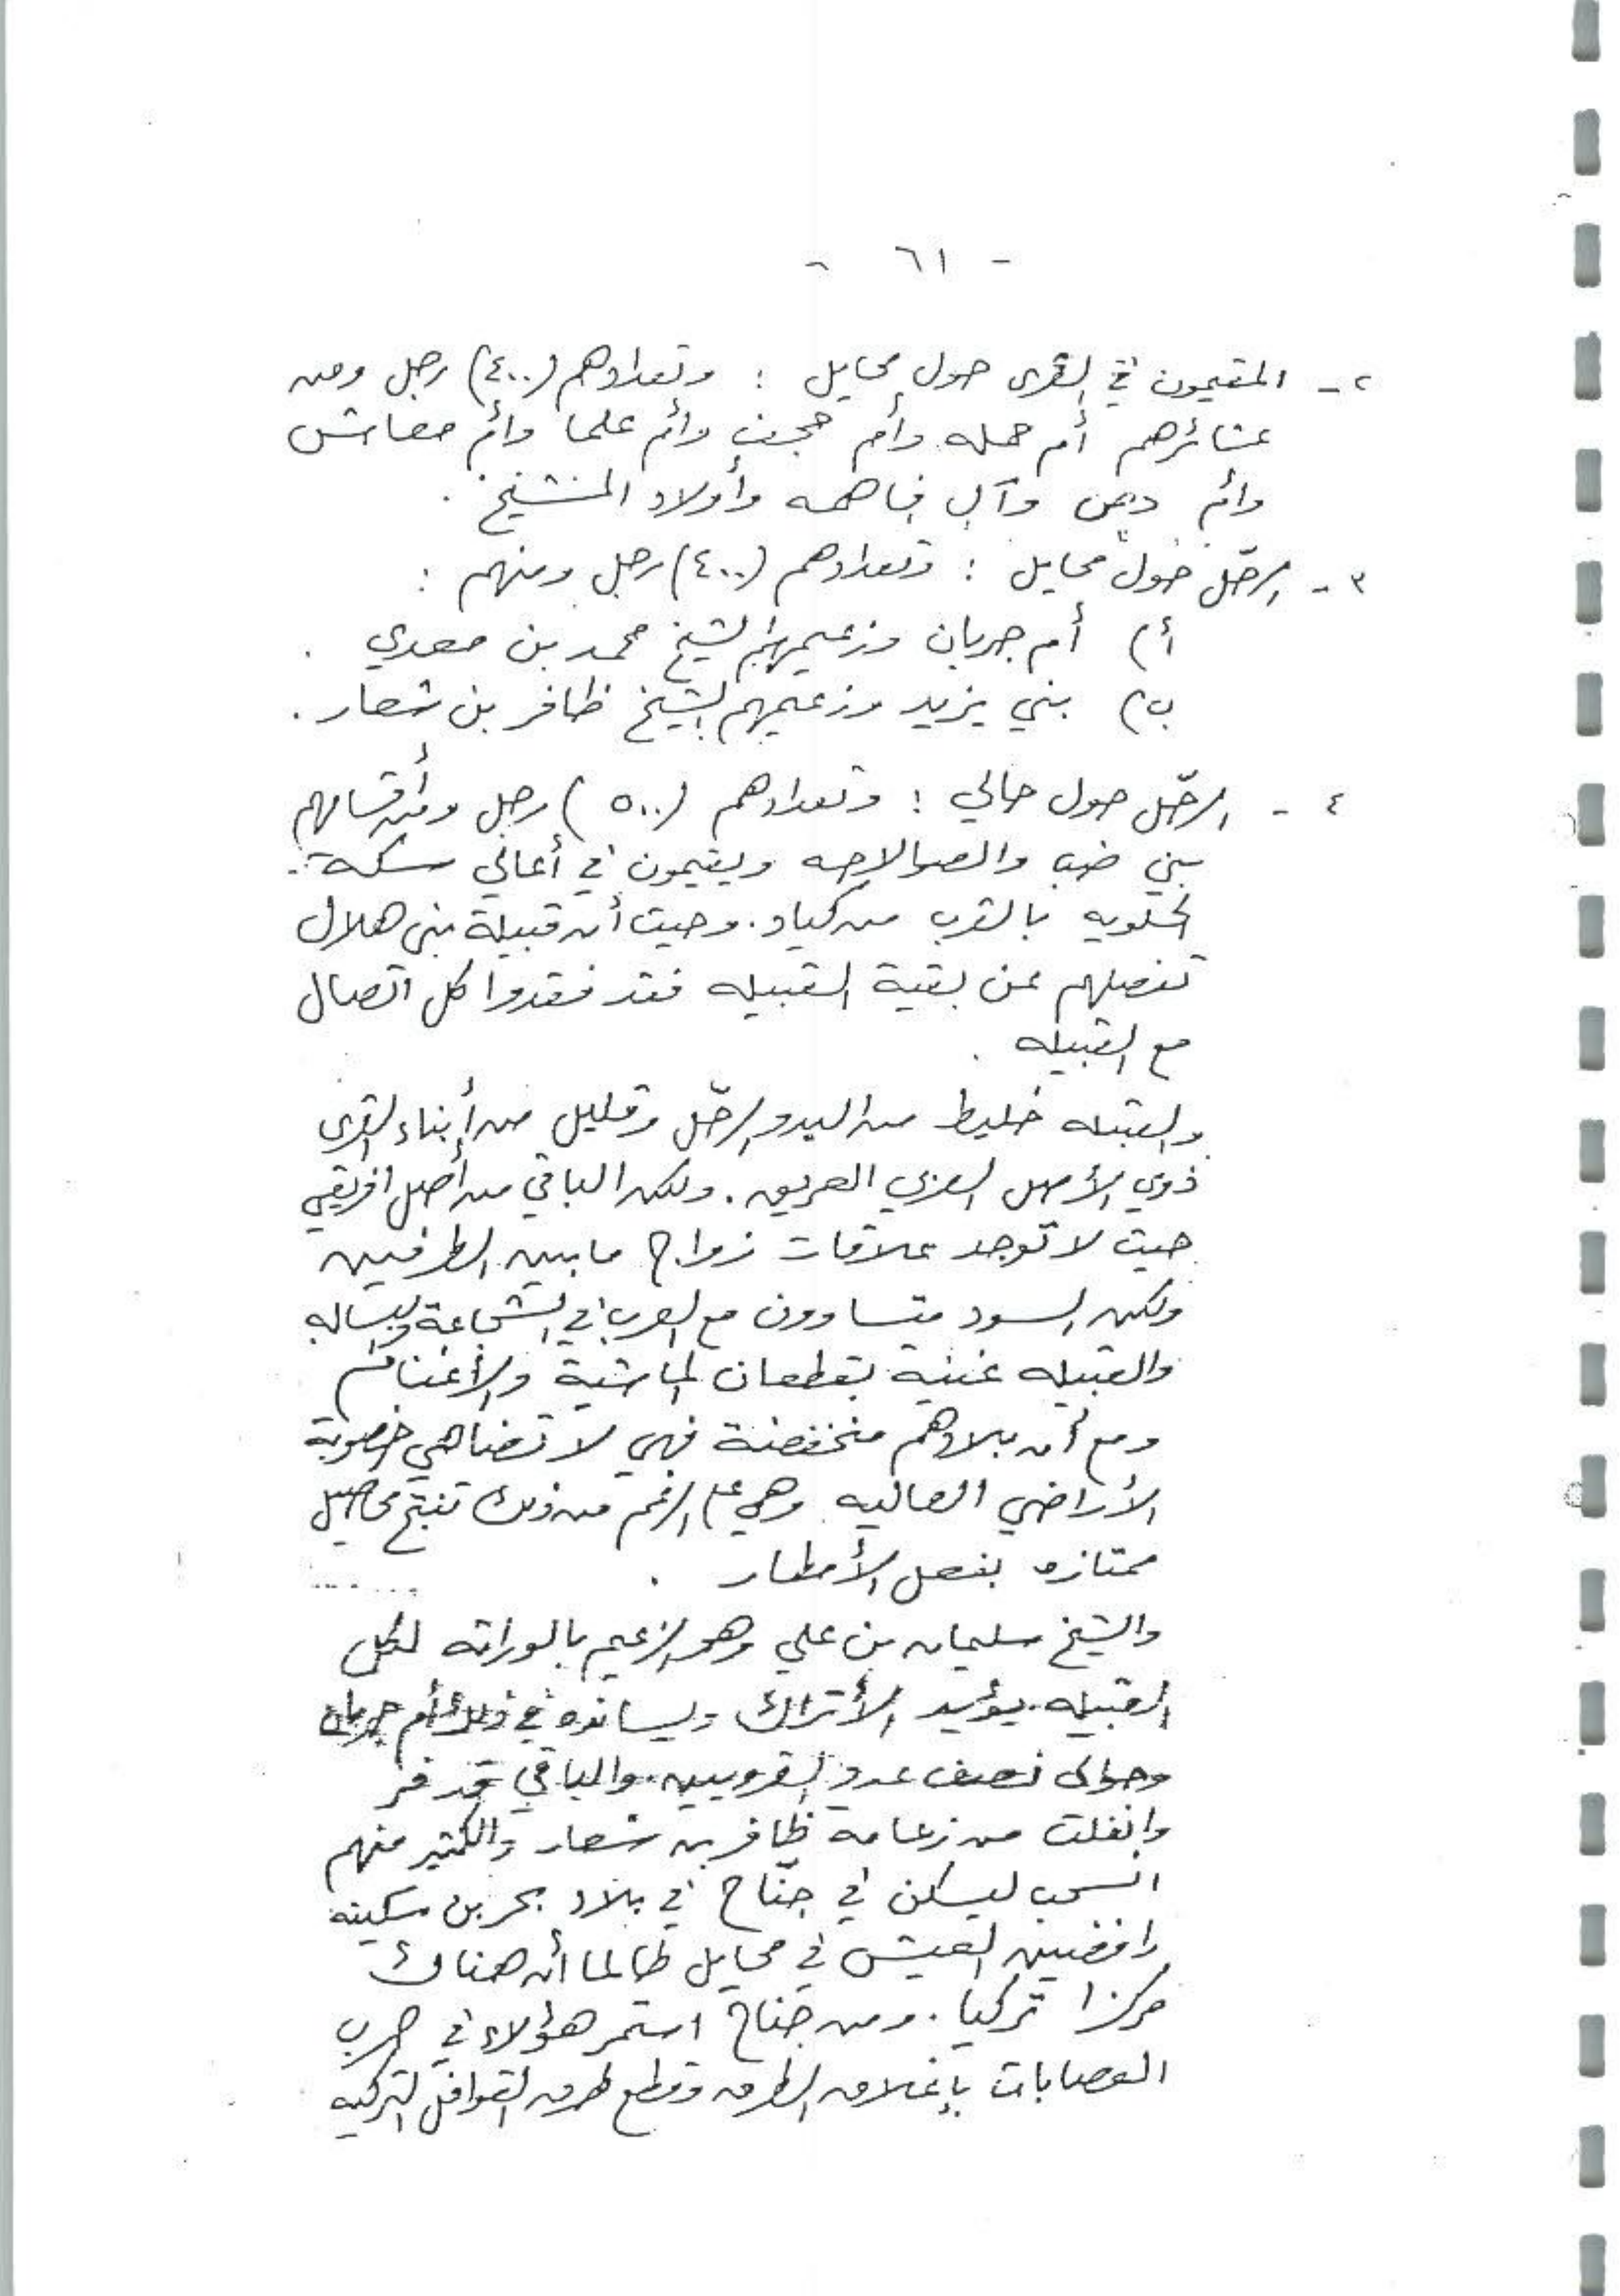 - ٦١ -
٢- المقيمون في القرى حول محايل : وتعدادهم (٤٠٠) رجل ومن
عشائرهم أم حمله وأم حجف وأم علما وأم معاش
وأم وآل فاهمه وأولاد المنشيخ .
٣- الرحّل حول محايل : وتعدادهم (٤٠٠) رجل ومنهم :
أ) أم جربان وزعيمهم الشيخ محمد بن معدي .
ب) بني يزيد وزعيمهم الشيخ ظافر بن شعار .
٤- الرحّل حول حالي : وتعدادهم (٥٠٠) رجل ومن أقسامهم
بني ضب والصوالحه ويقيمون في أعالي سكة
الحلويه بالقرب من كياد . وحيث أن قبيلة بني هلال
تفصلهم عن بقية القبيله فقد فقدوا كل اتصال
مع القبيله .
والقبيله خليط من البدو الرحّل وقليل من أبناء القرى
ذوي الأصل العربي العريق . ولكن الباقي من أصل افريقي
حيث لا توجد علاقات زواج ما بين الطرفين
ولكن السود متساوون مع العرب في الشجاعة والبساله
والقبيله غنيه بقطعان الماشية والأغنام
ومع أن بلادهم منخفضة فهي لا تضاهي خصوبة
الأراضي العاليه وهي على الرغم من ذلك تنتج محاصيل
ممتازه بفعل الأمطار .
والشيخ سليمان بن علي وهو الزعيم بالوراثه لكل
القبيله يؤيد الأتراك ويسانده في ذلك أم جربان
وحوالى نصف عدد القرويين . والباقي قد فر
وانفلت من زعامة ظافر بن شعار والكثير منهم
انسحب ليسكن في جنّاح في بلاد بحر بن سكينه
رافضين العيش في محايل طالما أن هناك
مركزا تركيا . ومن جناح استمر هؤلاء في حرب
العصابات بإغلاق الطرق وقطع طرق القوافل التركيه